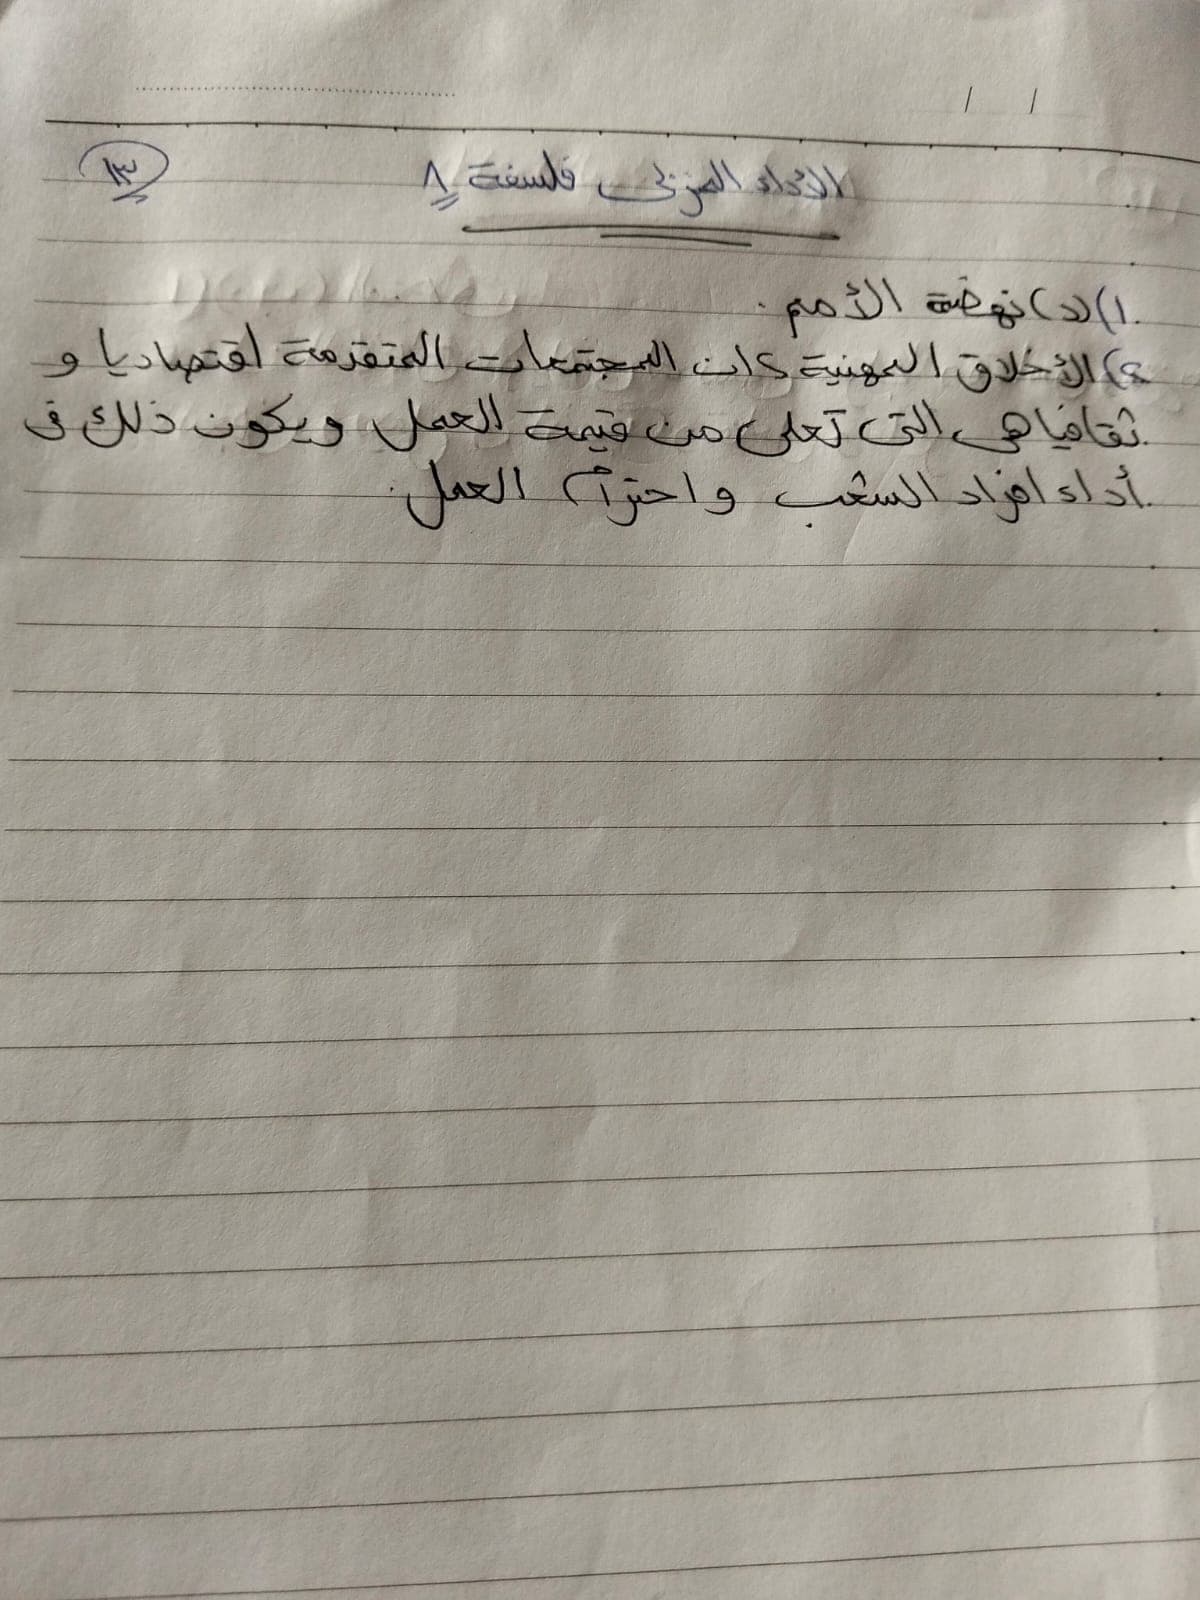 الأداء المنزلى فلسفة ٨
١٣
١) (د) نهضة الأمم.
٢) الأخلاق المهنية كان المجتمعات المتقدمة اقتصاديا و
ثقافيا هى التى تعلى من قيمة العمل ويكون ذلك ف
أداء افراد الشعب واحترام العمل.